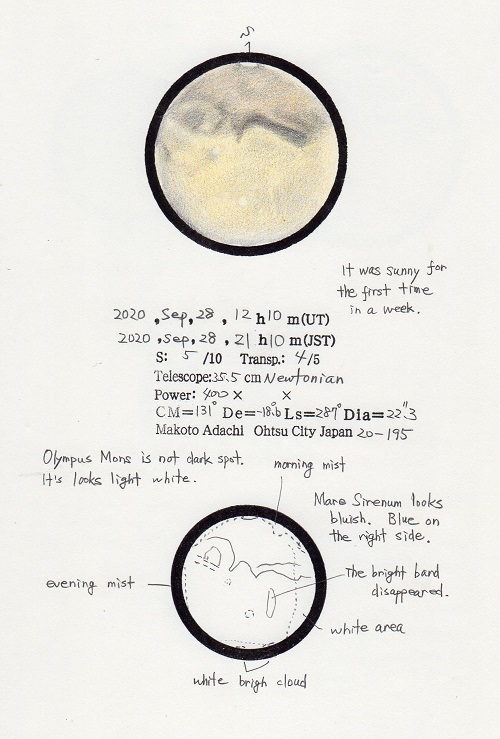 S
It was sunny for
the first time
in a week.
2020 , Sep, 28 , 12 h10 m(UT)
2020 , Sep, 28 , 21 h10 m(JST)
S: 5 /10 Transp.: 4/5
Telescope:35.5 cm Newtonian
Power: 400 × ×
CM=131° De=-18.6 Ls=287° Dia=22"3
Makoto Adachi Ohtsu City Japan 20-195
Olympus Mons is not dark spot.
It's looks light white.
morning mist
Mare Sirenum looks
bluish. Blue on
the right side.
evening mist
The bright band
disappeared.
white area
white brigh cloud